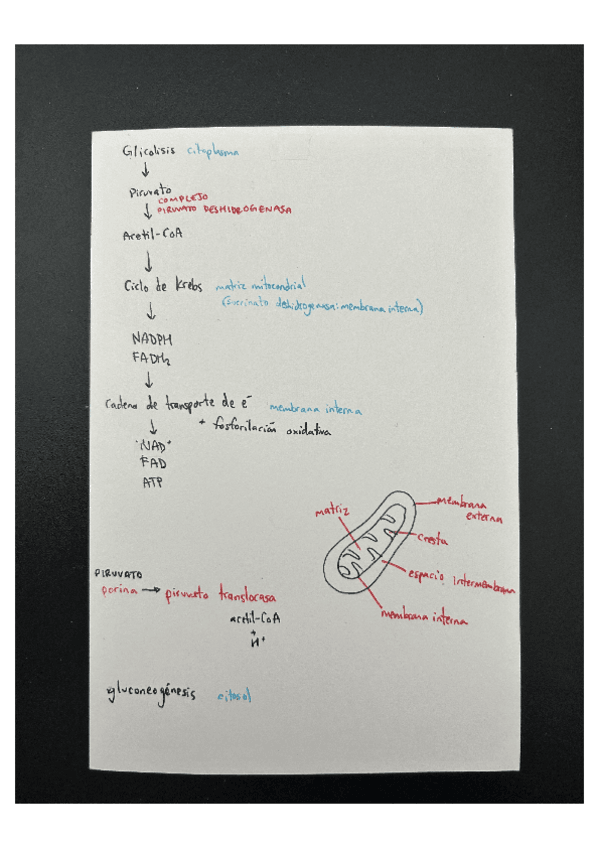 Glicolisis citoplasma
Piruvato
COMPLEJO
PIRUVATO DESHIDROGENASA
Acetil-CoA
Ciclo de Krebs matriz mitocondrial
(succinato deshidrogenasa: membrana interna)
NADPH
FADH₂
Cadena de transporte de e⁻ membrana interna
+ fosforilación oxidativa
NAD⁺
FAD
ATP
matriz
membrana
externa
cresta
espacio intermembrana
membrana interna
PIRUVATO
porina → piruvato translocasa
acetil-CoA
+
H⁺
gluconeogénesis citosol